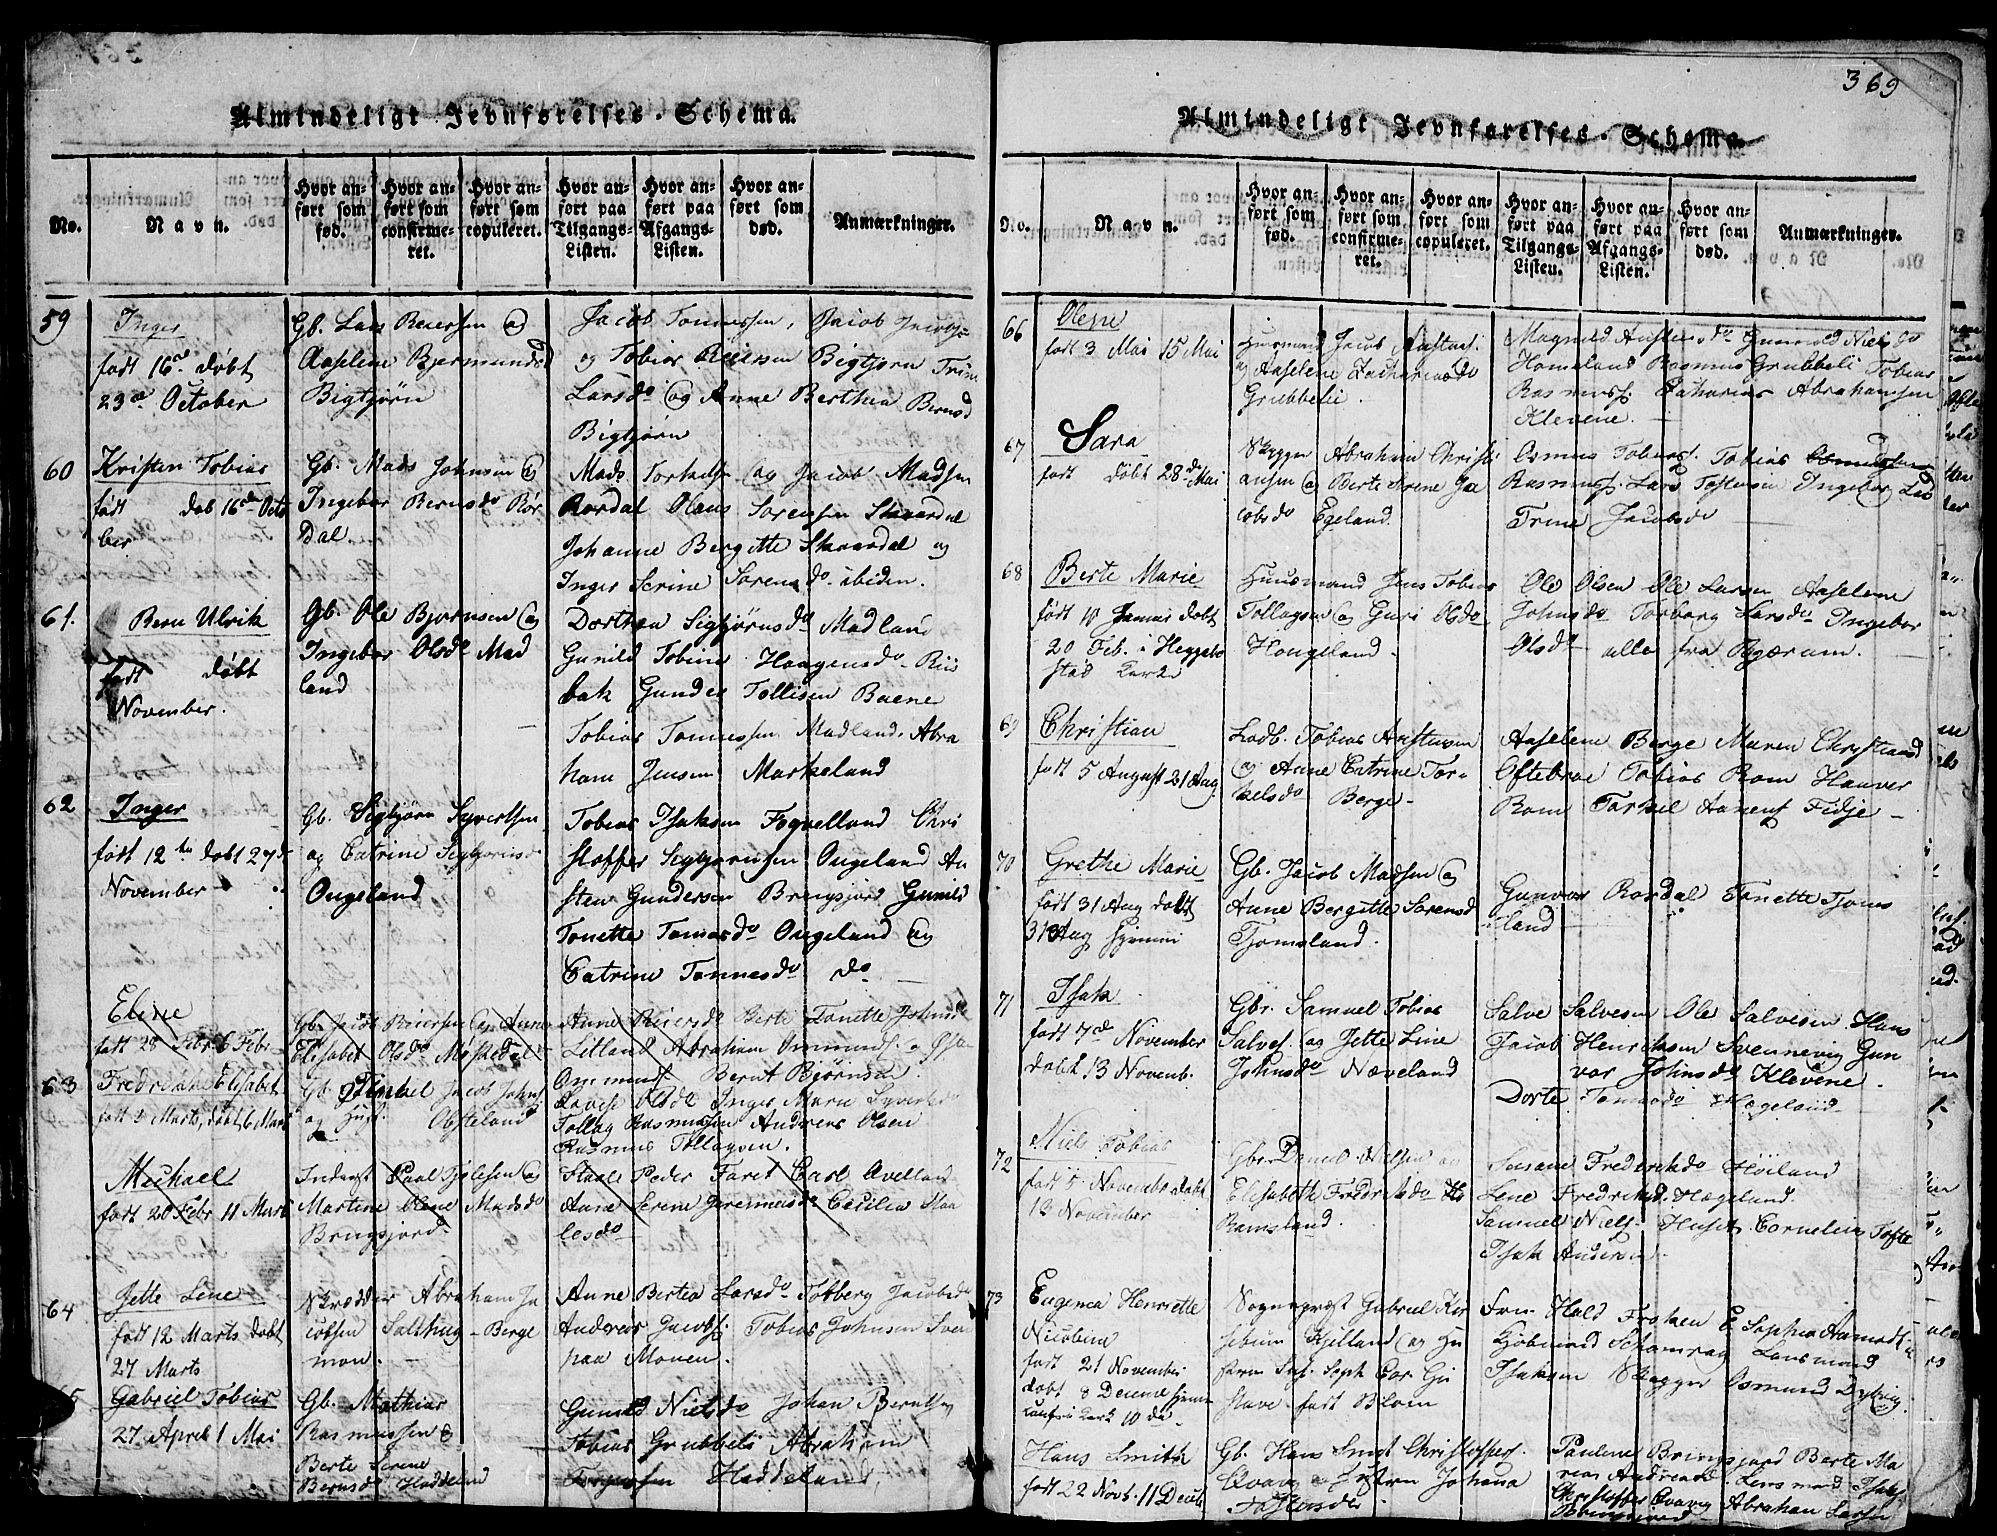 Almindeligt Jevnførelses-Schema.
No.
Navn.
Hvor anført som fød.
Hvor anført som confirmeret.
Hvor anført som copuleret.
Hvor anført paa Tilgangs-Listen.
Hvor anført paa Afgangs-Listen.
Hvor anført som død.
Anmærkninger.
59
Inger
født 16de døbt
23de October
Gb. Lars Reiersen og
Aaselene Bjermundsd
Bigtjørn
Jacob Tønnessen, Jacob
og Tobias Reiersen Bigtjørn Trine
Larsdo og Anne Berthea Bernsd
Bigtjørn
60
Kristen Tobias
født døb 16de Octo
ber
Gb. Mads Johnsen og
Ingebor Bernsdo Rør
dal
Mads Torkelsen og Jacob Madsen
Rørdal Olaus Sørensen Skaardal
Johanne Bergitte Skaardal og
Inger Serine Sørensdo ibiden.
61.
Bern Ulrik
født døbt
November.
Gb. Ole Bjørnsen og
Ingebor Olsdo Mad
land
Dorthea Sigbjørnsdo Madland
Gunild Tobine Haagensdo Riis
bak Gunder Tollisen Baene
Tobias Tønnessen Madland, Abra
ham Jensen Markeland
62
Inger
født 12te døbt 27de
November
Gb. Sigbjørn Syvertsen
og Catrine Sigbjørnsd
Ougeland
Tobias Isaksen Fogvelland Chri
stoffer Sigbjørnsen Ougeland An
sten Gundersen Bringsjord Gunild
Tonette Tomasdo Ougeland og
Catrine Tønnesdo do
Elene
født 28 Febr 6 Febr
Gb. Jacob Reiersen og Anne
Elisabet Olsdo Møskedal
Anne Reiersdo Berte Tonette Johnsdo
Letland Abraham Ommunds.
Ommunds. Bernt Bjørnsen
63
Fredrikke Elisabet
født Marts, døbt 6 Marts
Gb. Jacob Johns.
og
Ofteland
Olsdo Inger Maria Syvertsdo
Tollag Rasmussen Andreas Olsen
Rasmus Tollagsen.
Michael
født 20 Febr 11 Marts
Inderst Paal Tjølesen og
Martine Olene Madsdo
Bringsjord
Staale Peder Faret Carl Qvelland
Anne Serine Jeremiasdo Cecilia Staa
lesdo
64
Jette Lene
født 12 Marts døbt
27 Marts
Skrædder Abraham Ja
cobsen Salthug - Berge
mon.
Anne Bertea Larsdo Tobberg Jacobsdo
Andreas Jacobs. Tobias Johnsen Sven
paa Monen.
Gabriel Tobias
27 April 1 Mai
Gb. Mathias
Rasmussen &
Berte Serine
Berntsdo Haddeland
Gunild Nielsdo Johan Berntsen
Tobias Grubbeli Abraham
Haddeland.
369
Almindeligt Jevnførelses-Schema.
No.
Navn.
Hvor anført som fød.
Hvor anført som confirmeret.
Hvor anført som copuleret.
Hvor anført paa Tilgangs-Listen.
Hvor anført paa Afgangs-Listen.
Hvor anført som død.
Anmærkninger.
66
Olene
født 3 Mai 15 Mai
Huusmand Jacob Anstens.
og Aaselene Zachariasdo
Grubbelie.
Magnild Anstensdo Gunvald Nielsdo
Homeland Rasmus Grubbeli Tobias
Rasmuss. Zacharias Abrahamsen
Klevene.
67
Sara
født døbt 28de Mai
Skygger Abraham Christi
ansen og Berte Serine Ja
cobsdo Egeland.
Osmus Tobias. Tobias
Rasmuss. Lars Tostensen Ingebor Lars
Trine Jacobsdo
68
Berte Marie
født 10 Januar døbt
20 Feb. i Heggebo
stad Kerke
Huusmand Jens Tobias
Tollagsen og Guri Olsdo
Hougeland.
Ole Olsen Ole Larsen Aaselene
Johnsdo Torborg Larsdo Ingebor
Olsdo alle fra Bgærum.
69
Christian
født 5 August 21 Aug
Ladb. Tobias Anstensen
og Anne Catrine Tor
kelsdo Berge
Aaselene Berge Maren Chrystiansd
Oftebroe Tobias Rom Hauver
Rom Torkel Fidje
70
Grethe Marie
født 31 Aug døbt
31 Aug hjemmi
Gb. Jacob Madsen og
Anne Bergitte Sørensd
Tjomsland.
Gunvor Rørdal Tonette Tjoms
land
71
Isak
født 7de November
døbt 13 Novemb.
Gbr. Samuel Tobias
Salves. og Jette Line
Johnsdo Næveland
Salve Salvesen Ole Salvesen Hans
Jacob Henriksen Svennevig Gun
vor Johnsdo Klevene.
Dorte Tomasdo Hægeland
72
Niels Tobias
født 5 November døbt
13 November
Gbr Daniel Nielsen og
Elisabeth Fredriksdo
Ramsland.
Susane Fredriksdo Høiland
Lene Fredriksd. Hægeland.
Samuel Niels. Huset Cornelius Tofte
Isak Andersen
73
Eugenea Henriette
Nicobine
født 21 November
døbt 8 Decemr hjemme
Kerk 10 do
Sognepræst Gabriel Kir
sebom Kjelland og Hu
struen Inf. Soph Cor. Gu
stave født Blom
Fru Hald Frøken E. Sophia Arnvedt
Kjøbmand Schamvag Lensmand
Isaksen Skygger Osmund Dybvig.
Hans Smith
født 22 Novb. 11 Decbr
Gb. Hans Smidt Christoffers.
Qvavig og Hustru Johana
Tostensdo
Pauline Bringsjord Berte Ma
rea Andreasd Lensmand Isaks
Christoffer Qvavig Abraham Larsen